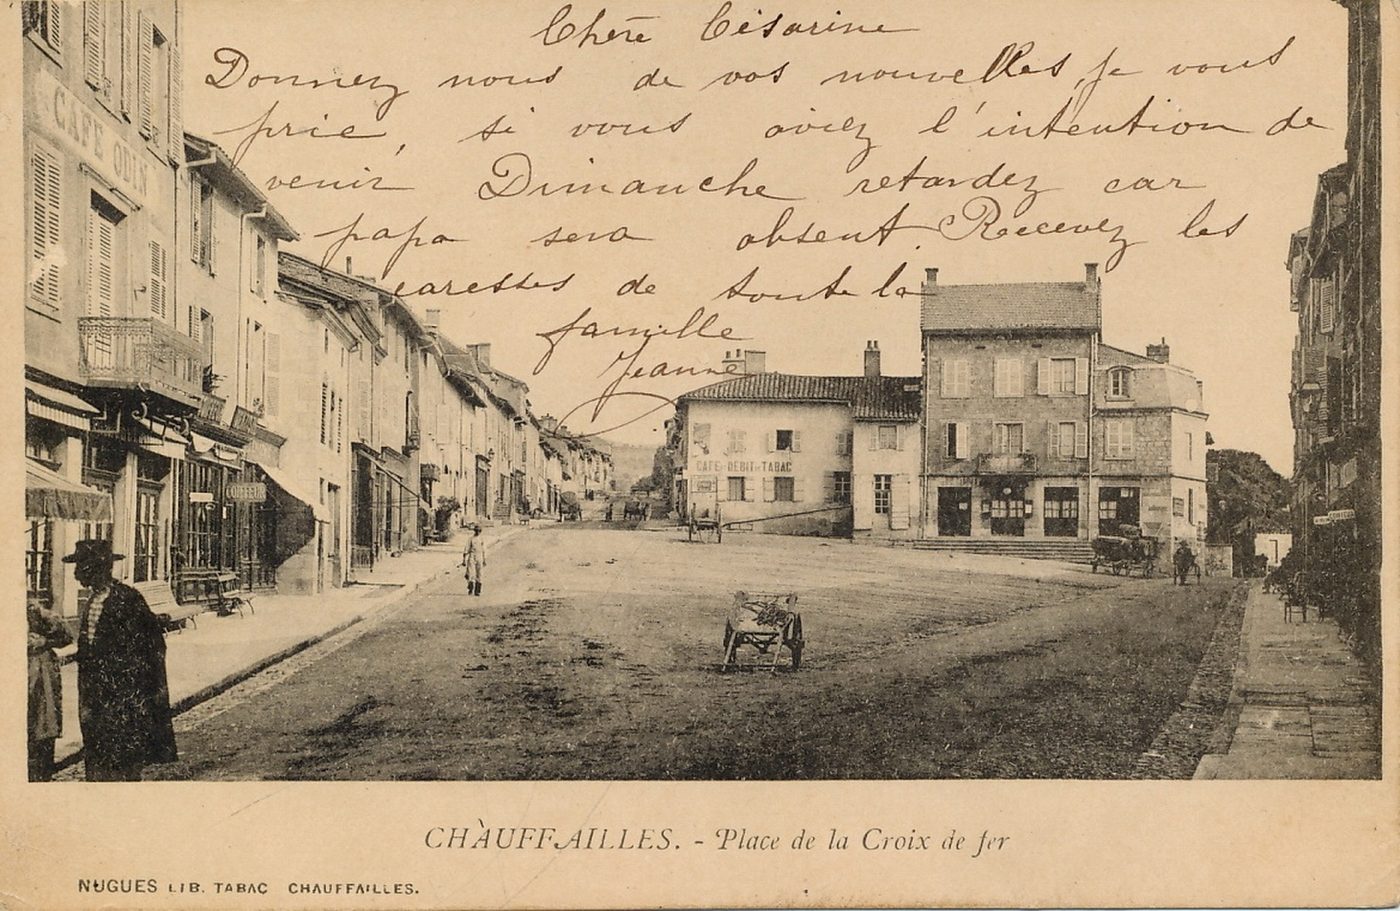 Chère Césarine
Donnez nous de vos nouvelles, je vous
prie, si vous aviez l'intention de
venir Dimanche retardez car
papa sera absent. Recevez les
caresses de toute la
famille
Jeanne
CAFE ODIN
COIFFEUR
CAFE - DEBIT DE TABAC
CHAUFFAILLES. - Place de la Croix de fer
NUGUES LIB. TABAC CHAUFFAILLES.